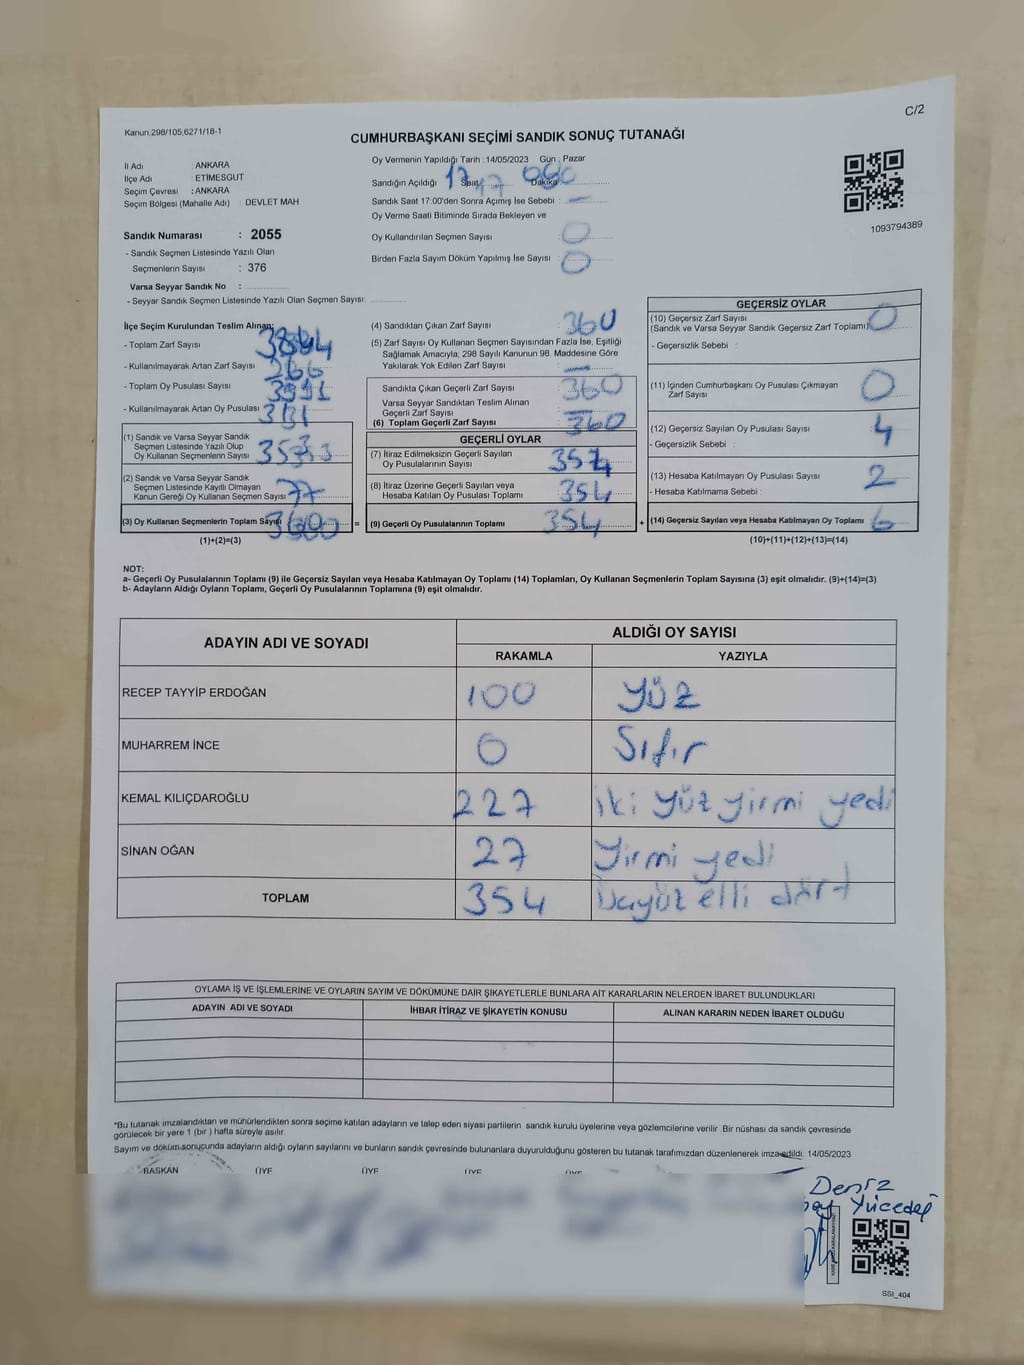 C/2
Kanun.298/105,6271/18-1
CUMHURBAŞKANI SEÇİMİ SANDIK SONUÇ TUTANAĞI
İl Adı : ANKARA
İlçe Adı : ETİMESGUT
Seçim Çevresi : ANKARA
Seçim Bölgesi (Mahalle Adı) : DEVLET MAH
Sandık Numarası : 2055
- Sandık Seçmen Listesinde Yazılı Olan
Seçmenlerin Sayısı : 376
Varsa Seyyar Sandık No :
- Seyyar Sandık Seçmen Listesinde Yazılı Olan Seçmen Sayısı:
Oy Vermenin Yapıldığı Tarih :14/05/2023 Gün : Pazar
Sandığın Açıldığı 17 Saat 17 Dakika
Sandık Saat 17:00'den Sonra Açımış İse Sebebi : —
Oy Verme Saati Bitiminde Sırada Bekleyen ve
Oy Kullandırılan Seçmen Sayısı : 0
Birden Fazla Sayım Döküm Yapılmış İse Sayısı : 0
1093794389
İlçe Seçim Kurulundan Teslim Alınan:
- Toplam Zarf Sayısı
- Kullanılmayarak Artan Zarf Sayısı
- Toplam Oy Pusulası Sayısı
- Kullanılmayarak Artan Oy Pusulası
(1) Sandık ve Varsa Seyyar Sandık
Seçmen Listesinde Yazılı Olup
Oy Kullanan Seçmenlerin Sayısı
(2) Sandık ve Varsa Seyyar Sandık
Seçmen Listesinde Kayıtlı Olmayan
Kanun Gereği Oy Kullanan Seçmen Sayısı
(3) Oy Kullanan Seçmenlerin Toplam Sayısı =
(1)+(2)=(3)
(4) Sandıktan Çıkan Zarf Sayısı : 360
(5) Zarf Sayısı Oy Kullanan Seçmen Sayısından Fazla İse, Eşitliği
Sağlamak Amacıyla; 298 Sayılı Kanunun 98. Maddesine Göre
Yakılarak Yok Edilen Zarf Sayısı : —
Sandıkta Çıkan Geçerli Zarf Sayısı : 360
Varsa Seyyar Sandıktan Teslim Alınan
Geçerli Zarf Sayısı : —
(6) Toplam Geçerli Zarf Sayısı : 360
GEÇERLİ OYLAR
(7) İtiraz Edilmeksizin Geçerli Sayılan
Oy Pusulalarının Sayısı 354
(8) İtiraz Üzerine Geçerli Sayılan veya
Hesaba Katılan Oy Pusulası Toplamı 354
(9) Geçerli Oy Pusulalarının Toplamı 354 +
GEÇERSİZ OYLAR
(10) Geçersiz Zarf Sayısı
(Sandık ve Varsa Seyyar Sandık Geçersiz Zarf Toplamı) 0
- Geçersizlik Sebebi :
(11) İçinden Cumhurbaşkanı Oy Pusulası Çıkmayan
Zarf Sayısı 0
(12) Geçersiz Sayılan Oy Pusulası Sayısı 4
- Geçersizlik Sebebi :
(13) Hesaba Katılmayan Oy Pusulası Sayısı 2
- Hesaba Katılmama Sebebi :
(14) Geçersiz Sayılan veya Hesaba Katılmayan Oy Toplamı 6
(10)+(11)+(12)+(13)=(14)
NOT:
a- Geçerli Oy Pusulalarının Toplamı (9) ile Geçersiz Sayılan veya Hesaba Katılmayan Oy Toplamı (14) Toplamları, Oy Kullanan Seçmenlerin Toplam Sayısına (3) eşit olmalıdır. (9)+(14)=(3)
b- Adayların Aldığı Oyların Toplamı, Geçerli Oy Pusulalarının Toplamına (9) eşit olmalıdır.
ADAYIN ADI VE SOYADI ALDIĞI OY SAYISI
RAKAMLA YAZIYLA
RECEP TAYYİP ERDOĞAN 100 Yüz
MUHARREM İNCE 0 Sıfır
KEMAL KILIÇDAROĞLU 227 iki yüz yirmi yedi
SİNAN OĞAN 27 Yirmi yedi
TOPLAM 354 elli dört
OYLAMA İŞ VE İŞLEMLERİNE VE OYLARIN SAYIM VE DÖKÜMÜNE DAİR ŞİKAYETLERLE BUNLARA AİT KARARLARIN NELERDEN İBARET BULUNDUKLARI
ADAYIN ADI VE SOYADI İHBAR İTİRAZ VE ŞİKAYETİN KONUSU ALINAN KARARIN NEDEN İBARET OLDUĞU
*Bu tutanak imzalandıktan ve mühürlendikten sonra seçime katılan adayların ve talep eden siyasi partilerin sandık kurulu üyelerine veya gözlemcilerine verilir. Bir nüshası da sandık çevresinde
görülecek bir yere 1 (bir) hafta süreyle asılır.
Sayım ve döküm sonucunda adayların aldığı oyların sayılarını ve bunların sandık çevresinde bulunanlara duyurulduğunu gösteren bu tutanak tarafımızdan düzenlenerek imza edildi. 14/05/2023
BAŞKAN ÜYE ÜYE ÜYE ÜYE
Deniz
SSI_404